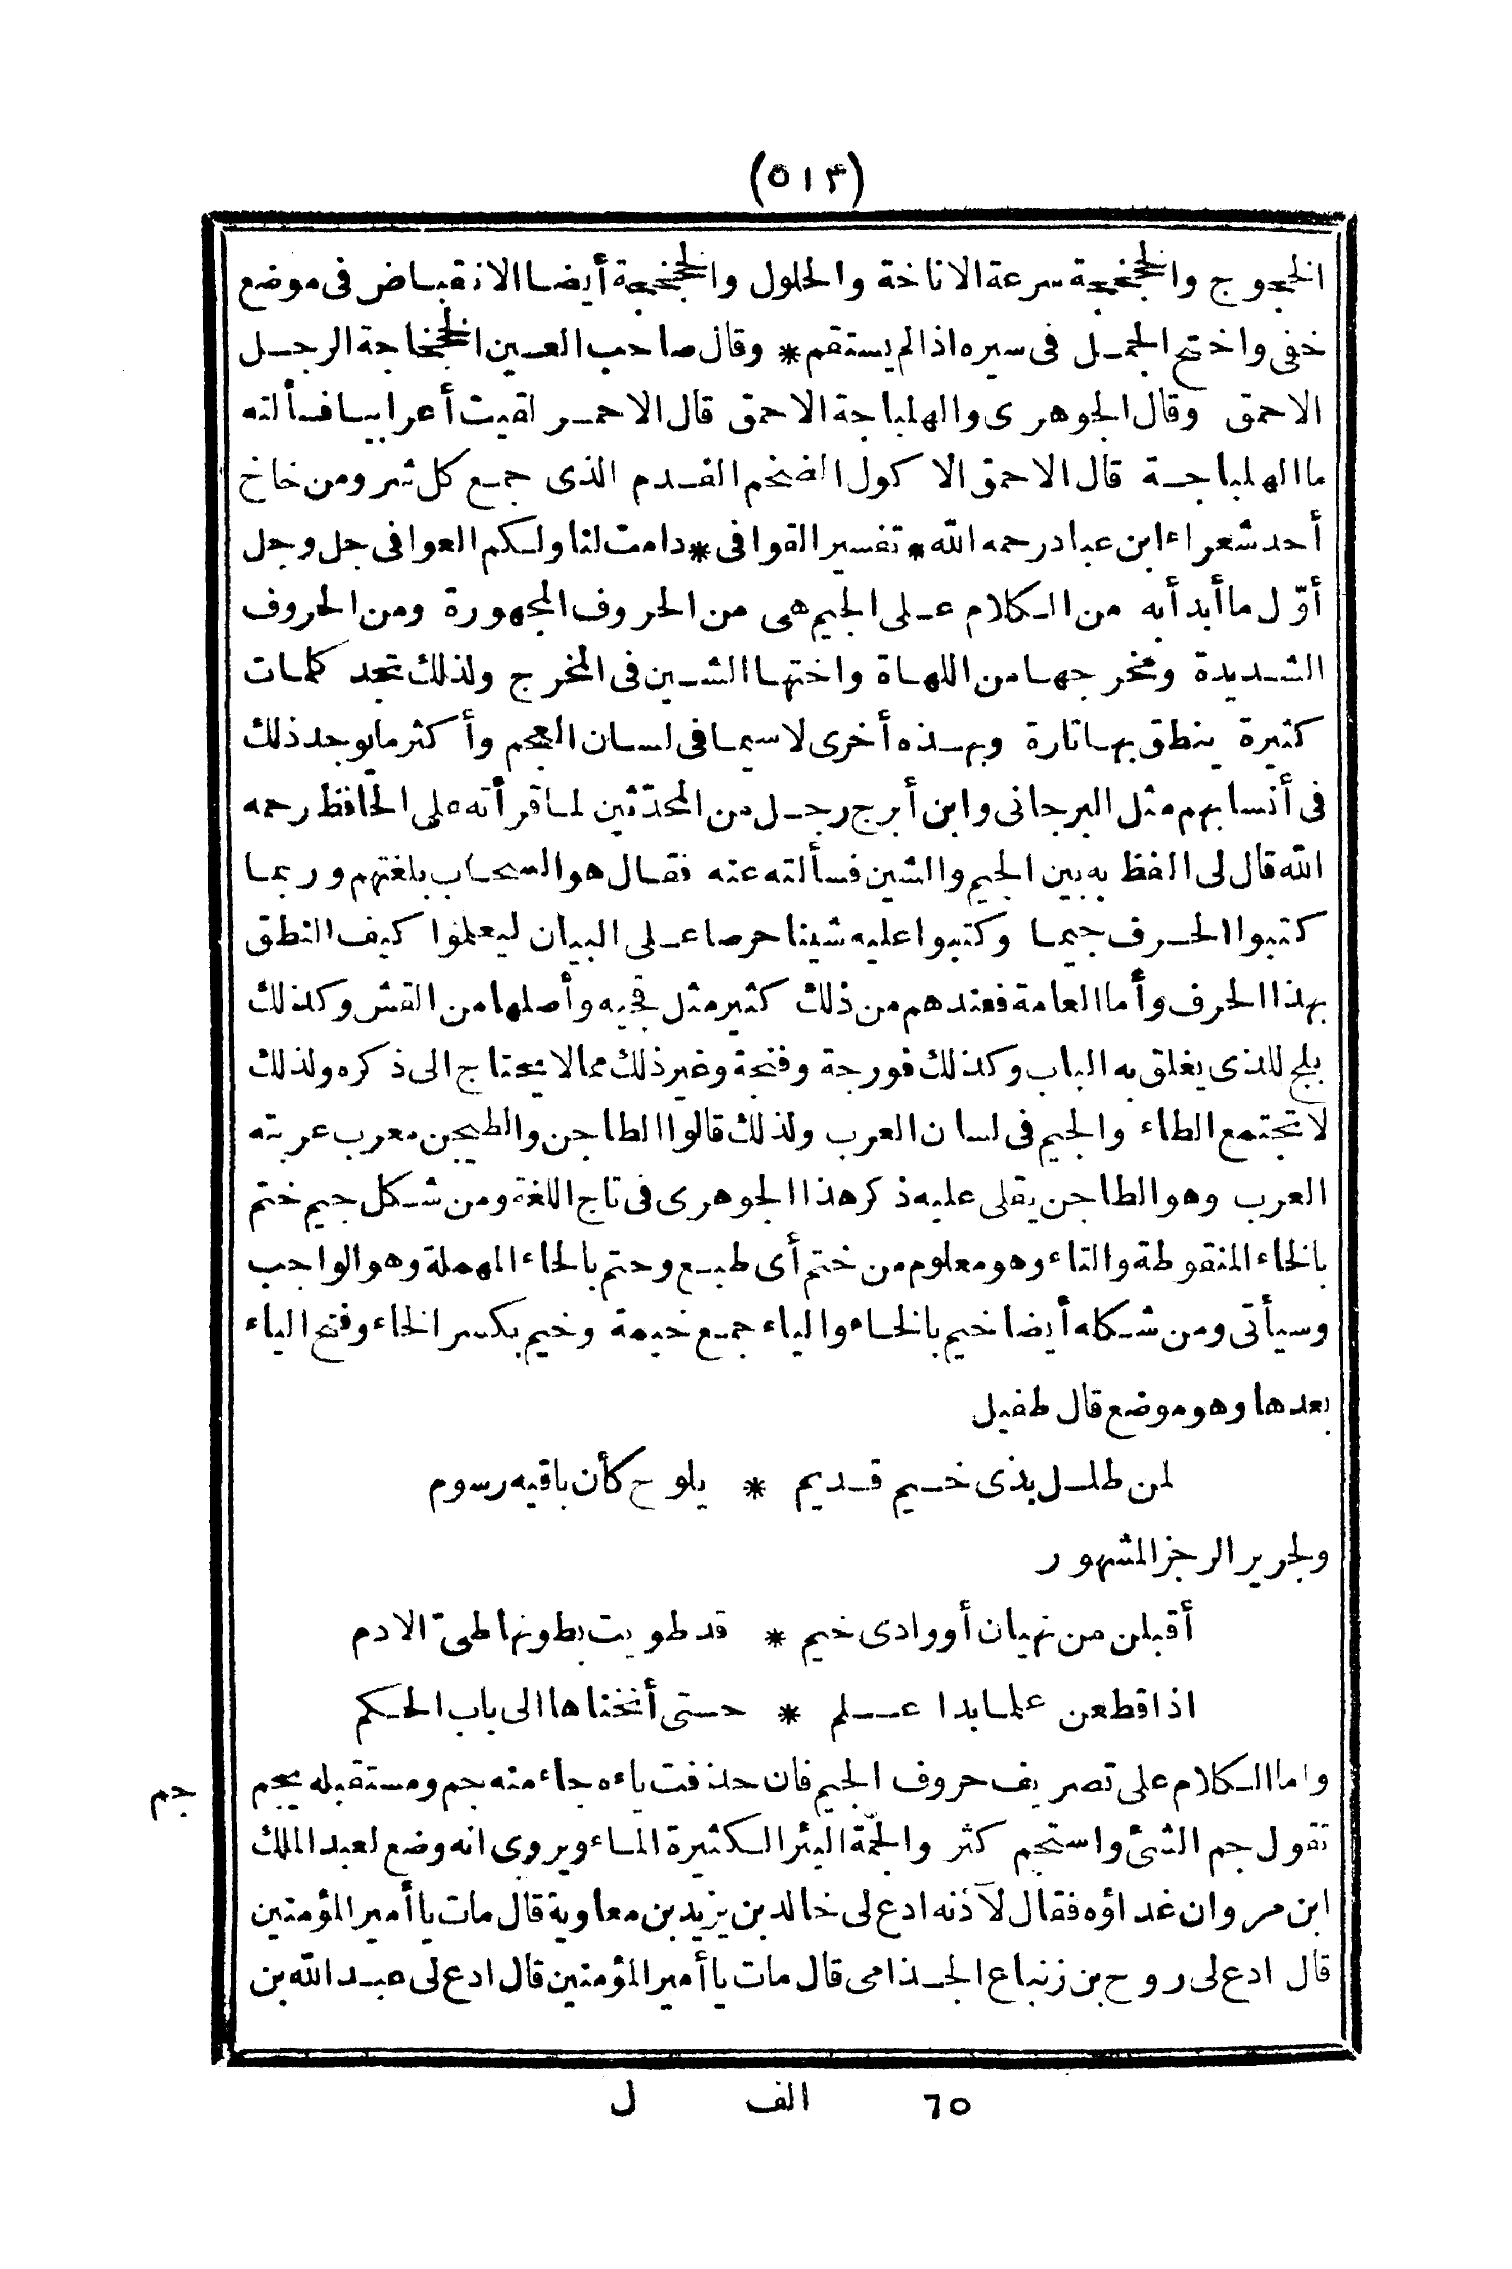 (٥١٣)
الخجوج والخجخجة سرعة الاناخة والحلول والخجخجة أيضا الانقباض فى موضع
خفى واختج الجمل فى سيره اذا لم يستقم * وقال صاحب العين الخجخاجة الرجل
الاحمق وقال الجوهرى والهلباجة الاحمق قال الاحمر لقيت أعرابيا فسألته
ما الهلباجة قال الاحمق الاكول الضخم الفدم الذى جمع كل شر ومن خاخ
أحد شعراء ابن عباد رحمه الله * تفسير القوافى * دامت لنا ولكم العوافى جل وجل
أوّل ما أبدأ به من الكلام على الجيم هى من الحروف المجهورة ومن الحروف
الشديدة ومخرجها من اللهاة واختها الشين فى المخرج ولذلك تجد كلمات
كثيرة ينطق بها تارة وبهذه أخرى لا سيما فى لسان العجم وأكثر ما يوجد ذلك
فى أنسابهم مثل البرجانى وابن أبرج رجل من المحدّثين لما قرأته على الحافظ رحمه
الله قال لى الفظ به بين الجيم والشين فسألته عنه فقال هو السحاب بلغتهم وربما
كتبوا الحرف جيما وكتبوا عليه شينا حرصا على البيان ليعلموا كيف النطق
بهذا الحرف وأما العامة فعندهم من ذلك كثير مثل قجيه وأصلها من القش وكذلك
بلج للذى يغلق به الباب وكذلك فورجة وفنجة وغير ذلك مما لا يحتاج الى ذكره ولذلك
لا تجتمع الطاء والجيم فى لسان العرب ولذلك قالوا الطاجن والطيجن معرب عربته
العرب وهو الطاجن يقلى عليه ذكر هذا الجوهرى فى تاج اللغة ومن شكل جيم ختم
بالخاء المنقوطة والتاء وهو معلوم من ختم أى طبع وحتم بالحاء المهملة وهو الواجب
وسيأتى ومن شكله أيضا خيم بالخاء والياء جمع خيمة وخيم بكسر الخاء وفتح الياء
بعدها وهو موضع قال طفيل
لمن طلل بذى خيم قديم * يلوح كأن باقيه رسوم
ولجرير الرجز المشهور
أقبلن من نهيان أو وادى خيم * قد طويت بطونها طىّ الادم
اذا قطعن علما بدا علم * حتى أنخناها الى باب الحكم
واما الكلام على تصريف حروف الجيم فان حذفت ياءه جاء منه جم ومستقبله يجم
جم
تقول جم الشئ واستجم كثر والجمّة البئر الكثيرة الماء ويروى انه وضع لعبد الملك
ابن مروان غداؤه فقال لآذنه ادع لى خالد بن يزيد بن معاوية قال مات يا أمير المؤمنين
قال ادع لى روح بن زنباع الجذامى قال مات يا أمير المؤمنين قال ادع لى عبد الله بن
٦٥ الف ل